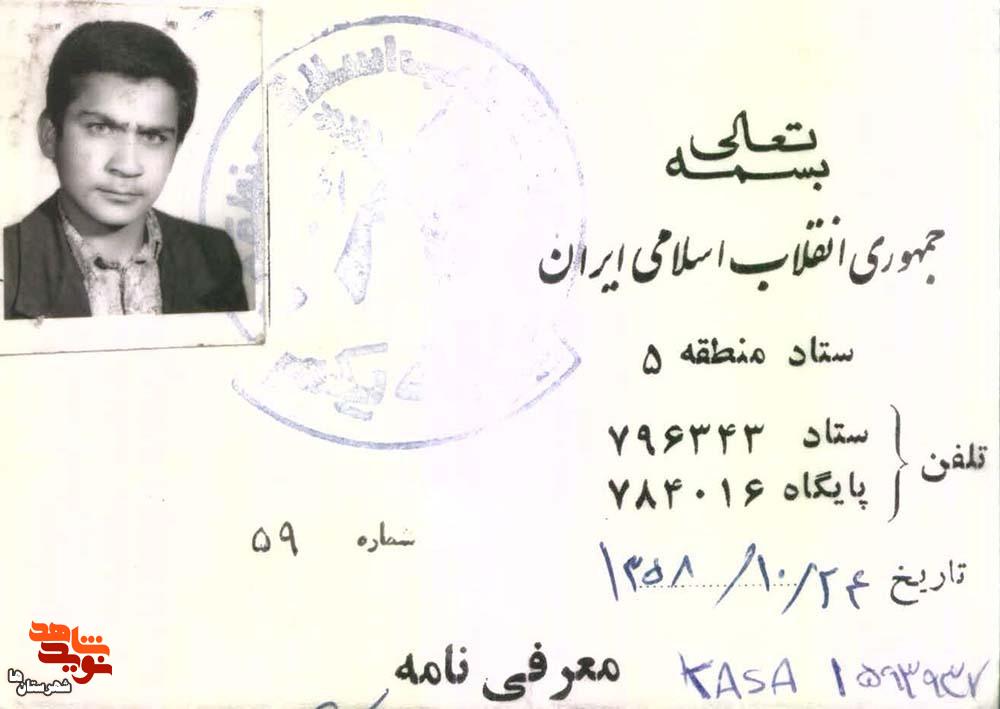 بسمه تعالی
جمهوری انقلاب اسلامی ایران
ستاد منطقه ۵
تلفن
ستاد ۷۹۶۳۴۳
پایگاه ۷۸۴۰۱۶
تاریخ ۱۳۵۸/۱۰/۲۴
شماره ۵۹
معرفی نامه
KASA ۱۵۹۳۹۳۷
نوید شاهد
شهرستان‌ها